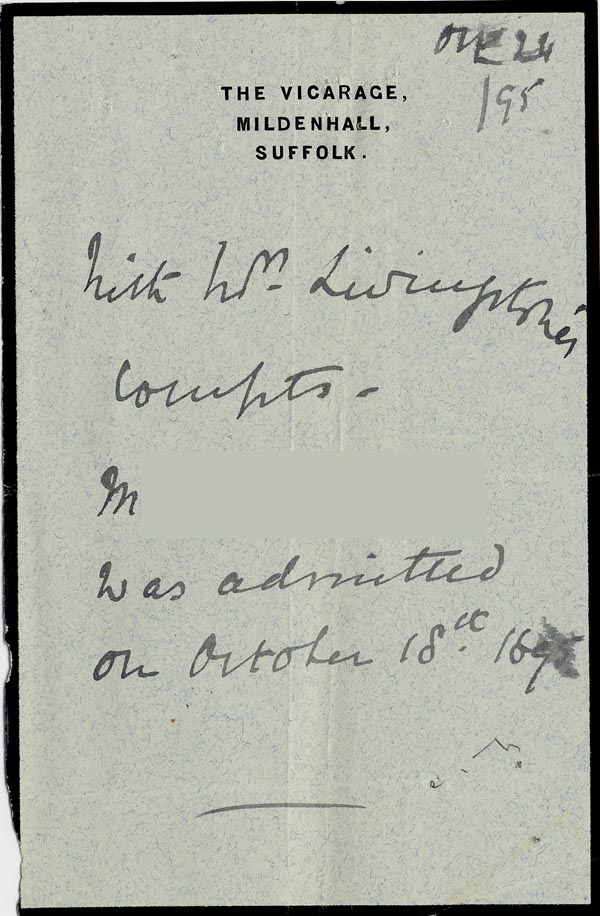 Oct 24
/95
THE VICARAGE,
MILDENHALL,
SUFFOLK.
With Mrs. Livingstone's
Compts -
M
was admitted
on October 18th. 1895